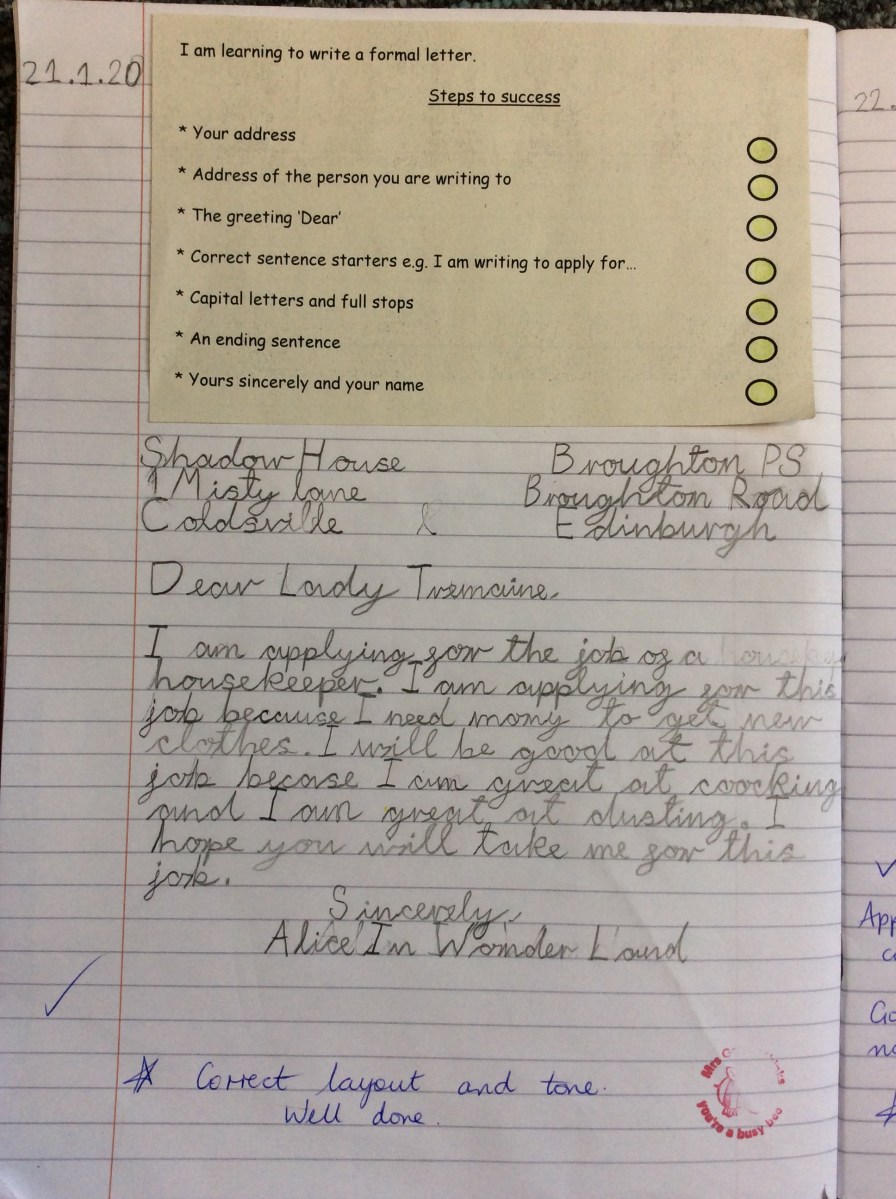 21.1.20
I am learning to write a formal letter.
Steps to success
* Your address
* Address of the person you are writing to
* The greeting 'Dear'
* Correct sentence starters e.g. I am writing to apply for...
* Capital letters and full stops
* An ending sentence
* Yours sincerely and your name
Shadow House Broughton PS
1 Misty lane Broughton Road
Coldsville Edinburgh
Dear Lady Tremaine,
I am applying for the job of a
housekeeper. I am applying for this
job because I need mony to get new
clothes. I will be good at this
job becase I am great at coocking
and I am great at dusting. I
hope you will take me for this
job.
Sincerely,
Alice In Wonder Land
* Correct layout and tone.
Well done.
Mrs
you're a busy bee
22.